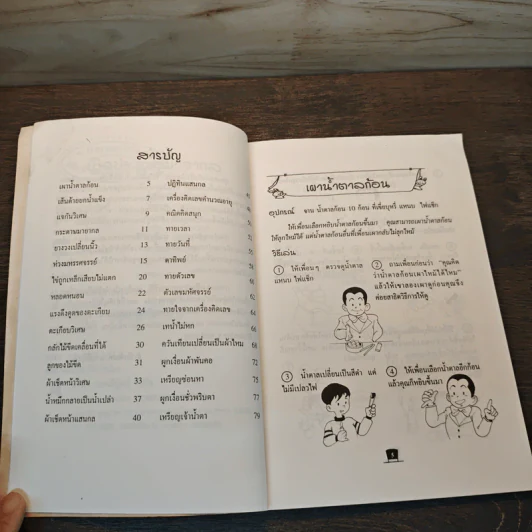 สารบัญ
เผาน้ำตาลก้อน 5
เส้นด้ายยกน้ำแข็ง 7
แจกันวิเศษ 9
กระดาษมายากล 11
ยางวงเปลี่ยนนิ้ว 13
ห่วงมหรรศจรรย์ 15
ใช้ถูกเหล็กเสียบไม่แตก 20
หลอดหนอน 22
แรงดึงดูดของตะเกียบ 24
ตะเกียบวิเศษ 26
กลักไม้ขีดเคลื่อนที่ได้ 30
ลูกของไม้ขีด 31
ผ้าเช็ดหน้าวิเศษ 33
น้ำหมึกกลายเป็นน้ำเปล่า 37
ผ้าเช็ดหน้าแสนกล 40
ปฏิทินแสนกล
เครื่องคิดเลขคำนวณอายุ
คณิตคิดสนุก
ทายเวลา
ทายวันที่
ตาทิพย์
ทายตัวเลข
ตัวเลขมหัศจรรย์
ทายใจจากเครื่องคิดเลข
เทน้ำไม่หก 66
ควันเทียนเปลี่ยนเป็นผ้าไหม 68
ผูกเงื่อนผ้าพันคอ 72
เหรียญซ่อนหา 75
ผูกเงื่อนชั่วพริบตา 77
เหรียญเจ้าน้ำตา 79
เผาน้ำตาลก้อน
อุปกรณ์ จาน น้ำตาลก้อน 10 ก้อน ที่เขี่ยบุหรี่ แหนบ ไฟแช็ก
ให้เพื่อนเลือกหยิบน้ำตาลก้อนขึ้นมา คุณสามารถเผาน้ำตาลก้อน
ให้ลุกไหม้ได้ แต่น้ำตาลก้อนอื่นที่เพื่อนเผากลับไม่ลุกไหม้
วิธีเล่น
1 ให้เพื่อนๆ ตรวจดูน้ำตาล
แหนบ ไฟแช็ก
2 ถามเพื่อนก่อนว่า "คุณคิด
ว่าน้ำตาลก้อนเผาไหม้ได้ไหม"
แล้วให้เขาลองเผาดูก่อนคุณจึง
ค่อยสาธิตวิธีการให้ดู
3 น้ำตาลเปลี่ยนเป็นสีดำ แต่
ไม่มีเปลวไฟ
4 ให้เพื่อนเลือกน้ำตาลอีกก้อน
แล้วคุณก็หยิบขึ้นมา
5